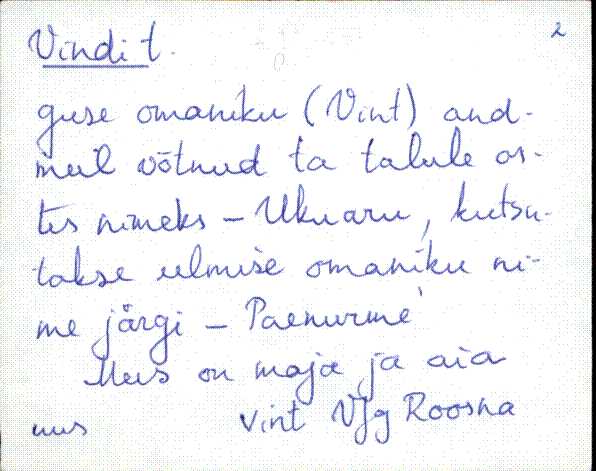 Vindi t. 2
guse omaniku (Vint) and-
meil võtnud ta talule os-
tes nimeks - Ukuaru, kutsu-
takse eelmise omaniku ni-
me järgi - Paenurme
Uus on maja ja aia
uus Vint VJg Roosna